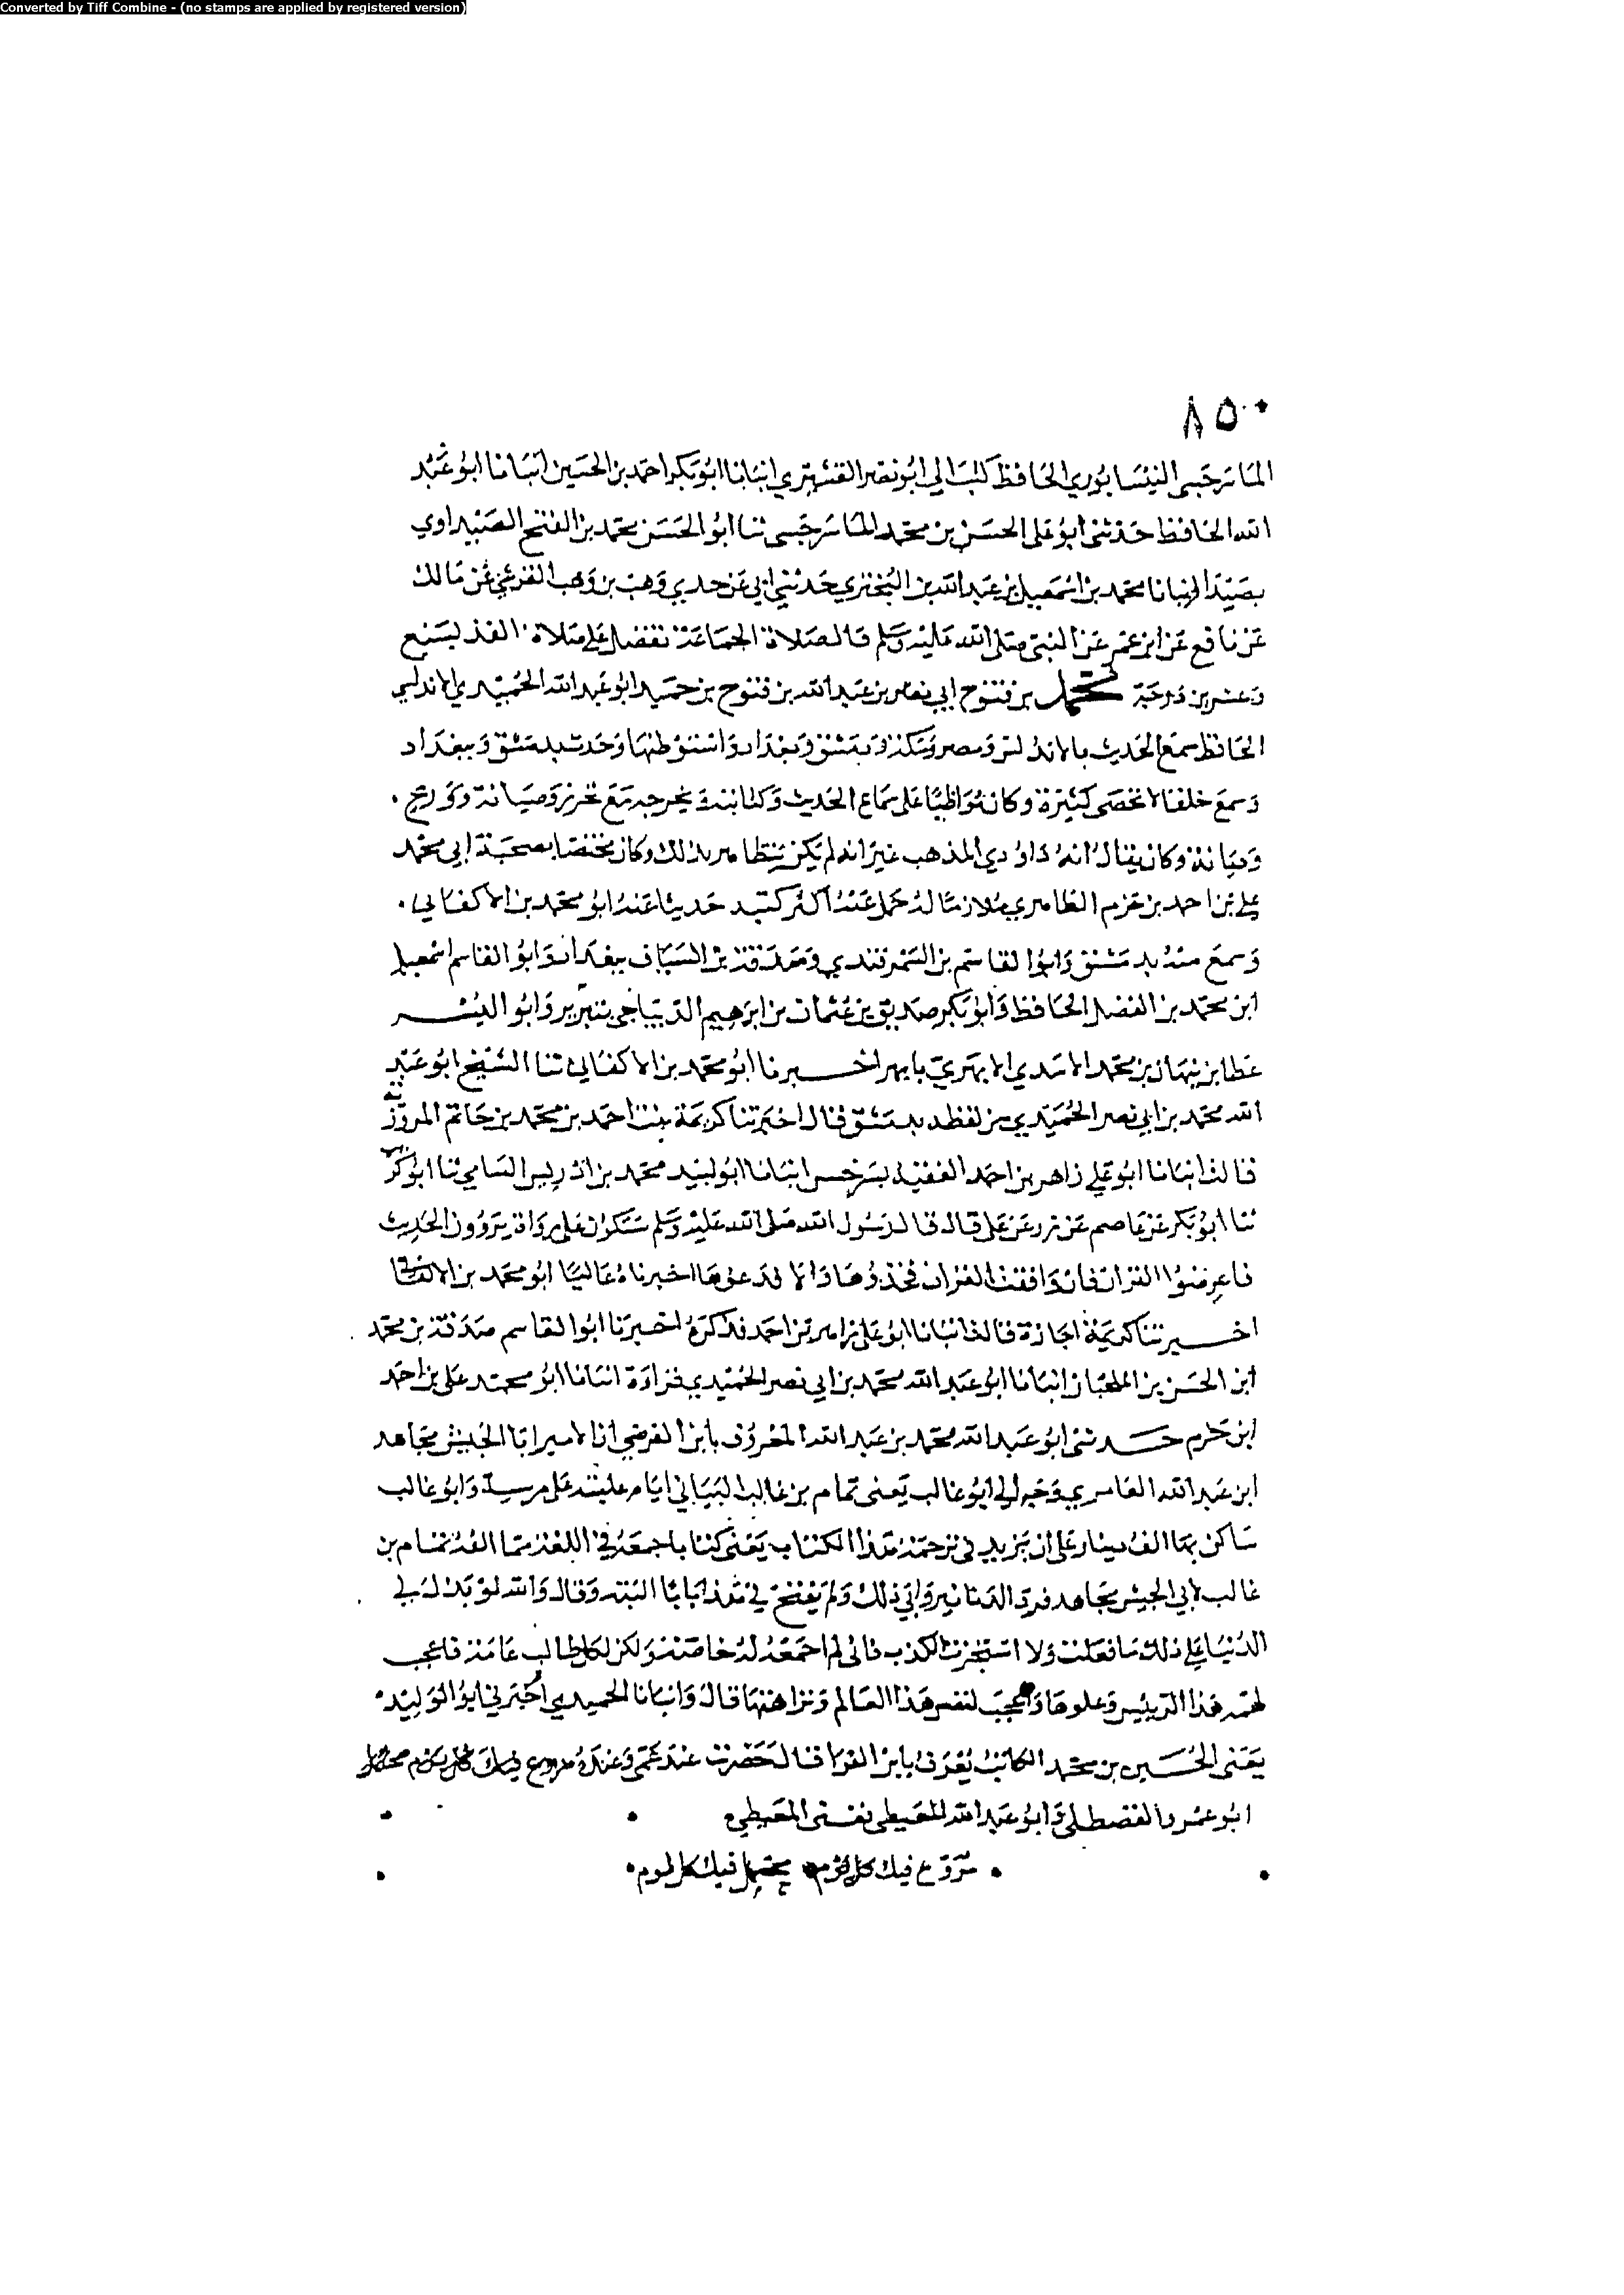 Converted by Tiff Combine - (no stamps are applied by registered version)
٨٥٠
الماسرجسي النيسابوري الحافظ كتب الي ابو نصر القشيري انبانا ابو بكر احمد بن الحسين انبانا ابو عبد
الله الحافظ حدثني ابو علي الحسن بن محمد الماسرجسي ثنا ابو الحسن محمد بن الفتح الصيداوي
بصيدا انبانا محمد بن اسمعيل بن عبد الله بن البختري حدثني ابي عن جدي وهب بن وهب القرشي عن مالك
عن نافع عن ابن عمر عن النبي صلى الله عليه وسلم قال صلاة الجماعة تفضل على صلاة الفذ بسبع
وعشرين درجة محمد بن فتوح ابي نصر بن عبد الله بن فتوح بن حميد ابو عبد الله الحميدي الاندلسي
الحافظ سمع الحديث بالاندلس ومصر ومكة ودمشق وبغداد واستوطنها وحدث بدمشق وببغداد
وسمع خلقا لا تحصى كثيرة وكان مواظبا على سماع الحديث وكتابته وتخريجه مع تحرز وصيانة وورع
وديانة وكان يقال انه داودي المذهب غير انه لم يكن يتظاهر بذلك وكان مختصا بصحبة ابي محمد
علي بن احمد بن حزم الظاهري ملازما له حمل عنه اكثر كتبه حدثنا عنه ابو محمد بن الاكفاني
وسمع منه بدمشق وابو القاسم بن السمرقندي وصدقة بن السياف ببغداد وابو القاسم اسمعيل
ابن محمد بن الفضل الحافظ وابو بكر صديق بن عثمان بن ابرهيم الديباجي بتبريز وابو اليسر
عطا بن نبهان بن محمد الاسدي الابهري بابهر اخبرنا ابو محمد بن الاكفاني ثنا الشيخ ابو عبد
الله محمد بن ابي نصر الحميدي من لفظه بدمشق قال اخبرتنا كريمة بنت احمد بن محمد بن حاتم المروزية
قالت انبانا ابو علي زاهر بن احمد الفقيه بسرخس انبانا ابو لبيد محمد بن ادريس السامي ثنا ابو كريب
ثنا ابو بكر عن عاصم عن زر عن علي قال قال رسول الله صلى الله عليه وسلم ستكون علي رواة يروون الحديث
فاعرضوا القران فان وافقت القران فخذوها والا فدعوها اخبرناه عاليا ابو محمد بن الاكفاني
اخبرتنا كريمة اجازة قالت انبانا ابو علي زاهر بن احمد فذكره اخبرنا ابو القاسم صدقة بن محمد
ابن الحسن بن الملحبان انبانا ابو عبد الله محمد بن ابي نصر الحميدي قراءة انبانا ابو محمد علي بن احمد
ابن حزم حدثني ابو عبد الله محمد بن عبد الله المعروف بابن الفرضي ان الامير ابا الجيش مجاهد
ابن عبد الله العامري وجه الى ابو غالب يعني تمام بن غالب البياني ايام غلبته على مرسية وابو غالب
ساكن بها الف دينار على ان يزيد في ترجمة هذا الكتاب يعني كتابا جمعه في اللغة مما الفه تمام بن
غالب لابي الجيش مجاهد فرد الدنانير وابى ذلك ولم يفتح في هذا بابا البتة وقال والله لو بذل لي
الدنيا على ذلك ما فعلت ولا استجزت الكذب فاني لم اجمعه له خاصة ولكن لكل طالب عامة فاعجب
لهمه هذا الرئيس وعلوها واعجب لنفس هذا العالم ونزاهتها قال وانبانا الحميدي اخبرني ابو الوليد
يعني الحسين بن محمد الكاتب يعرف بابن الفرا قال حضرت عند عمي وعنده
ابو عمرو القصطلي وابو عبد الله المعيطي نغني المعيطي
مروع فيك كل يوم محتمل فيك كل لوم